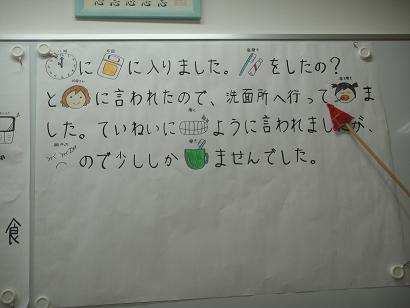 に に入りました。 をしたの?
と に言われたので、洗面所へ行って ま
した。ていねいに ように言われましたが、
ので少ししか ませんでした。
食